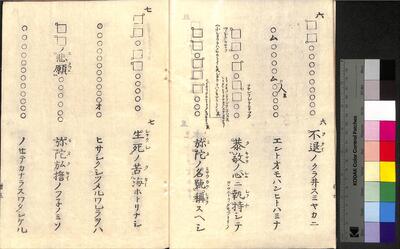 六
六
不退ノクラ井スミヤカニ
エントオモハンヒトハミナ
人
恭敬ノ心ニ執持シテ
弥陀ノ名號稱スヘシ
七
七
生死ノ苦海ホトリナシ
オ
ヒサシクシツメルワレラヲハ
ノ悲願
弥陀弘誓ノフ子ノミソ
ノセテカナラスワタシケル
KODAK Color Control Patches